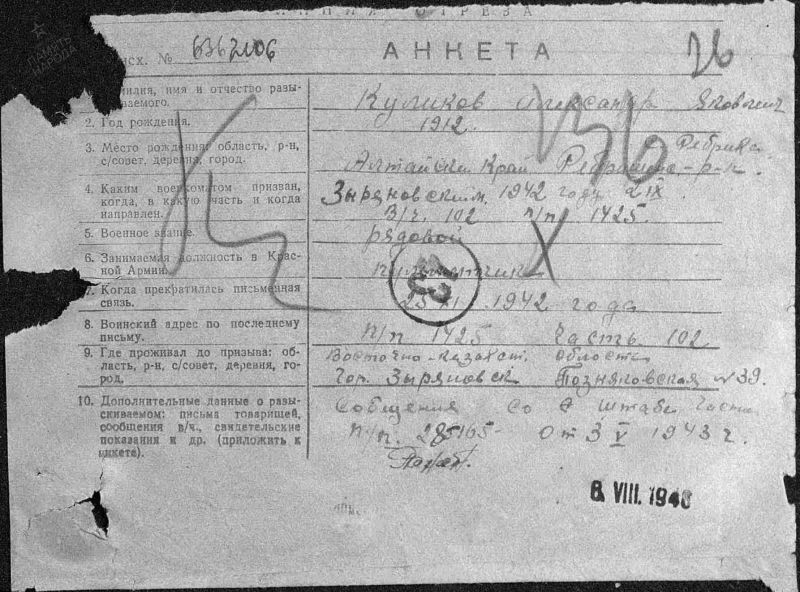 ПАМЯТЬ НАРОДА
ЛИНИЯ ОТРЕЗА
исх. № 6362106
АНКЕТА
76
милия, имя и отчество разы-
ваемого.
Куликов Александр Яковлевич
2. Год рождения.
1912.
3. Место рождения: область, р-н,
с/совет, деревня, город.
Алтайски Край р-н.
4. Каким военкоматом призван,
когда, в какую часть и когда
направлен.
Зыряновским 1942 году 2 IX
В/ч. 102 п/п. 1425.
5. Военное звание.
рядовой
6. Занимаемая должность в Крас-
ной Армии.
пулеметчик
7. Когда прекратилась письменная
связь.
25 XI .1942 года
8. Воинский адрес по последнему
письму.
п/п 1425 Часть 102
9. Где проживал до призыва: об-
ласть, р-н, с/совет, деревня, го-
род.
Восточно-Казахст. Область
Гор. Зыряновск Позняковская №39.
10. Дополнительные данные о разы-
скиваемом: письма товарищей,
сообщения в/ч., свидетельские
показания и др. (приложить к
анкете).
Сообщения со штаба части
п/п. от 3 V 1943 г.
6 VIII. 1946